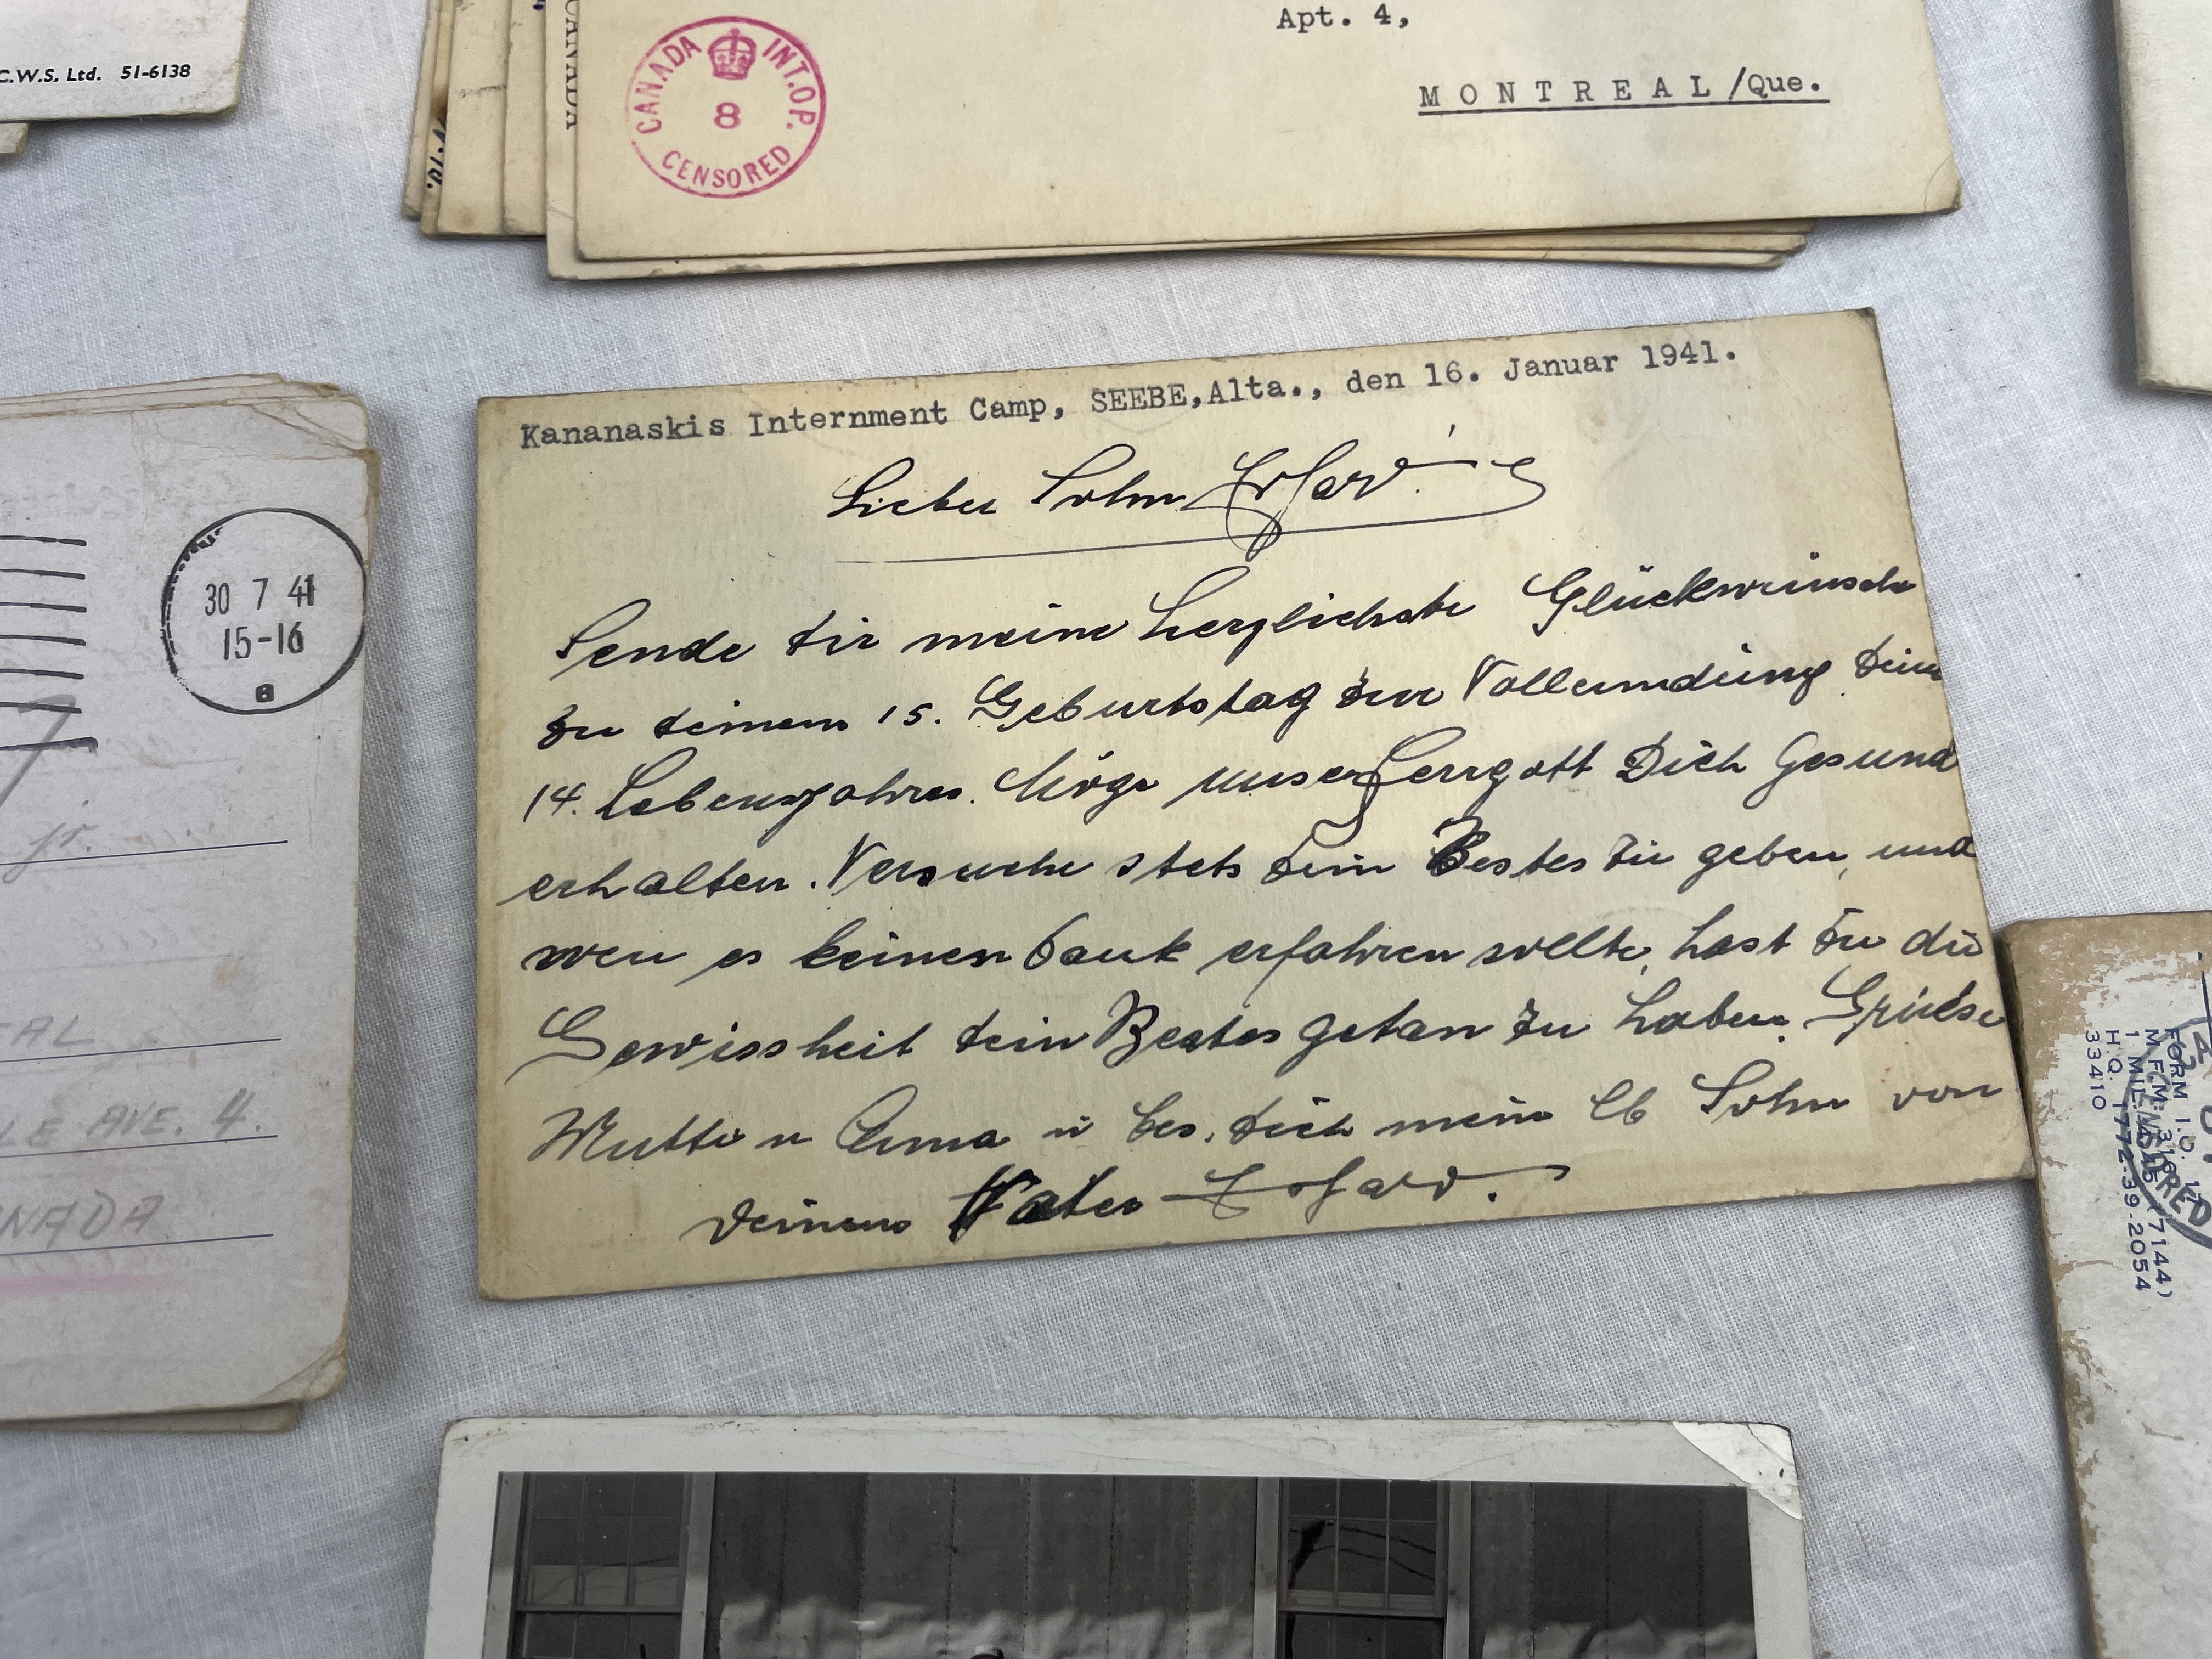 C.W.S. Ltd. 51-6138
CANADA
CANADA INT. OP.
8
CENSORED
Apt. 4,
MONTREAL/Que.
Kananaskis Internment Camp, SEEBE, Alta., den 16. Januar 1941.
Lieber Sohn
Sende dir meine herzlichste Glückwünsche
zu deinem 15. Geburtstag zur Vollendung dein
14. Lebensjahres. Möge unser Herrgott Dich Gesund
erhalten. Versuche stets dein Bestes zu geben, und
wen es keinen Dank erfahren sollte, hast du die
Gewissheit dein Bestes getan zu haben. Grüsse
Mutti u Oma u bes. dich mein lb Sohn von
deinem Vater
30 7 41
15-16
a
jr.
EAL
LE AVE. 4.
NADA
FORM I.O.
1 MIL
H.Q. 1772-39-2054
33410